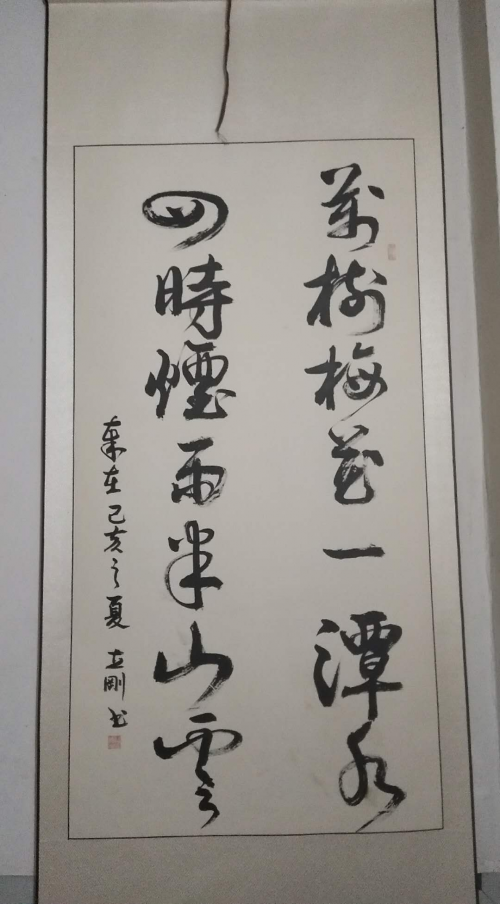 萬樹梅花一潭水
四時煙雨半山雲
歲在己亥之夏 立剛书